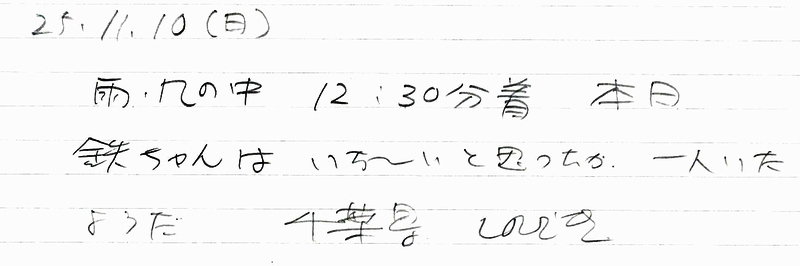 25.11.10(日)
雨・風の中 12:30分着 本日
鉄ちゃんは いな〜いと思ったが. 一人いた
ようだ 千葉号